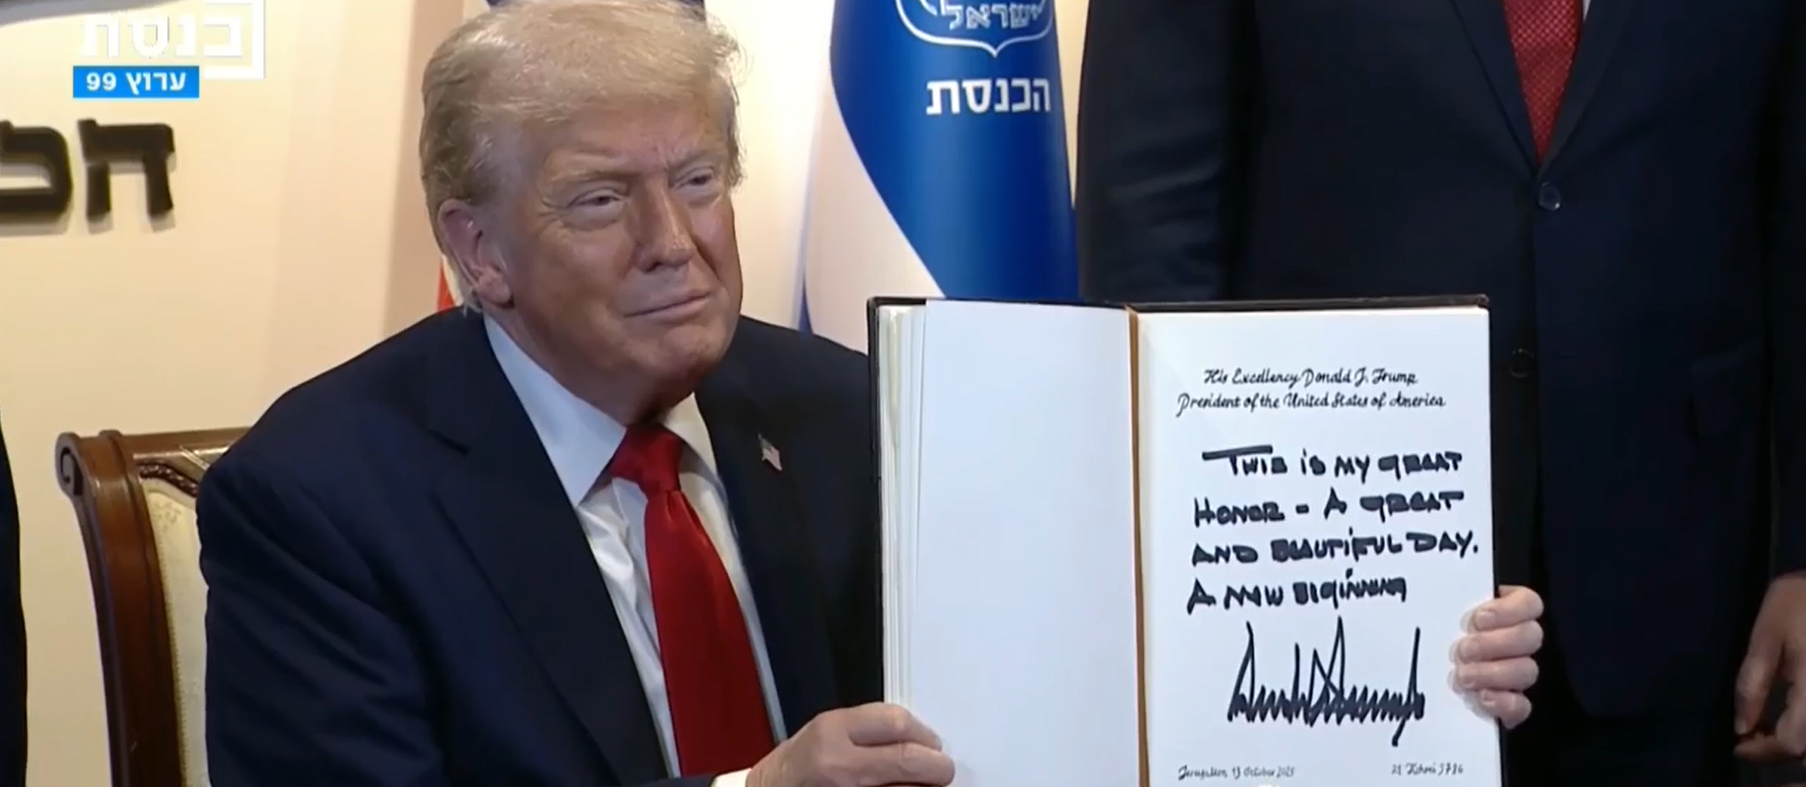 כנסת
ערוץ 99
הכ
ישראל
הכנסת
His Excellency Donald J. Trump
President of the United States of America
THIS IS MY GREAT
HONOR - A GREAT
AND BEAUTIFUL DAY.
A NEW BEGINNING
Jerusalem, 13 October 2025
21 Tishrei 5786